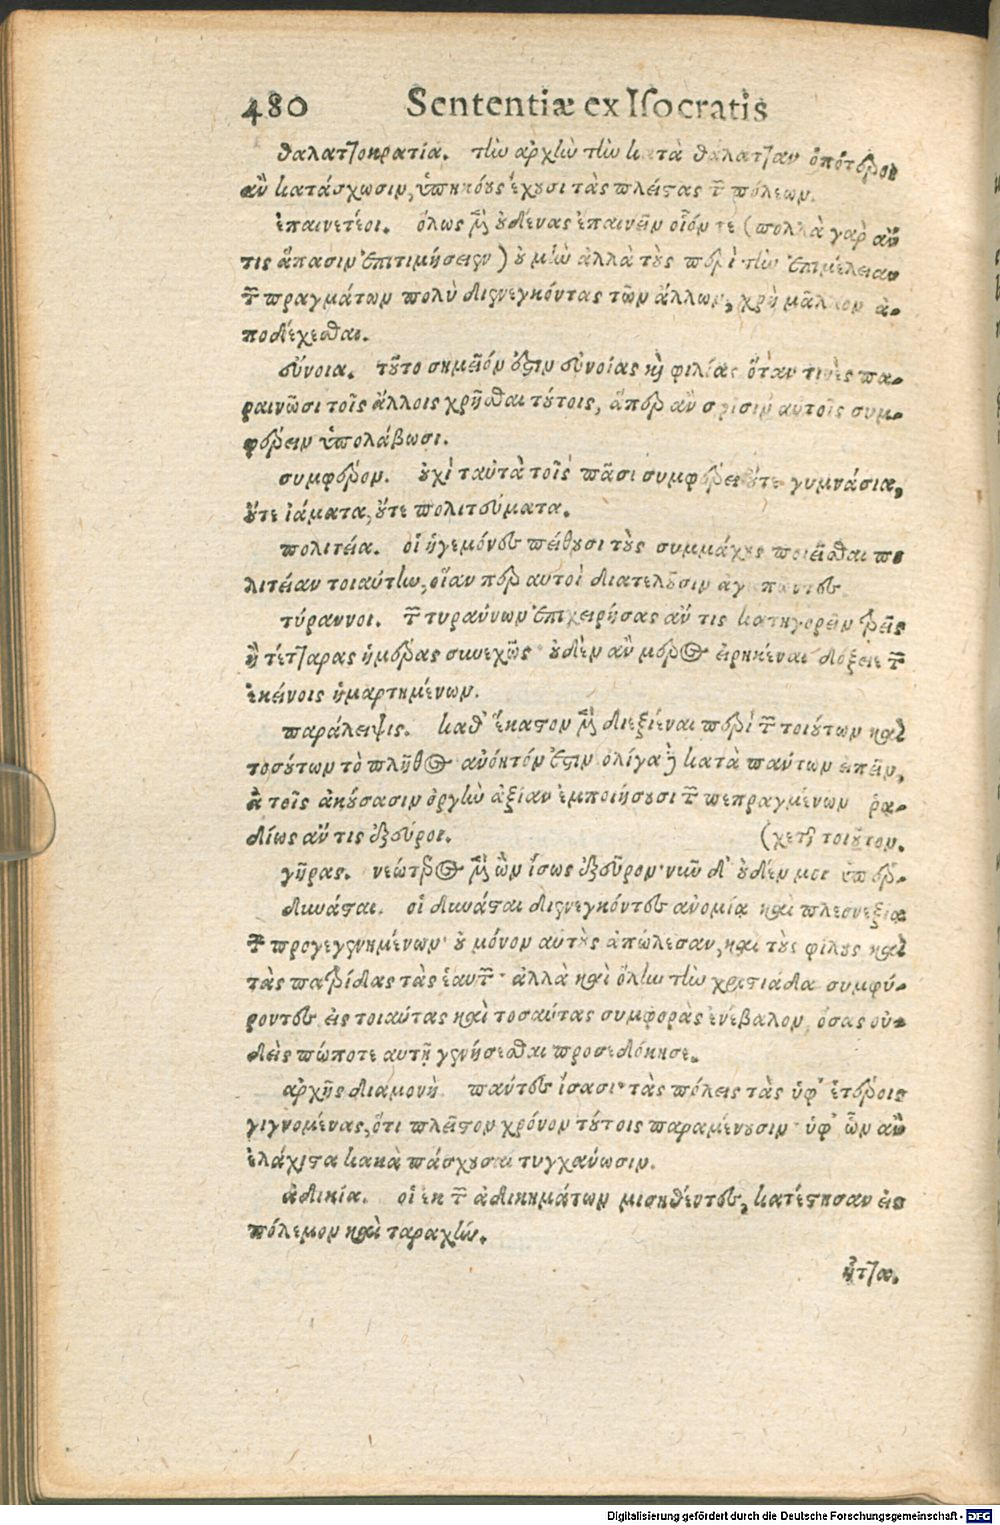 480 Sententiæ ex Isocratis
θαλατ7οκρατία. τὴν ἀρχὴν τὴν κατὰ θάλατ7αν ὁπότεροι
ἂν κατάσχωσιν, ὑπηκόους ἔχουσι τὰς πλείςας τῶν πόλεων.
ἐπαινετέοι. ὅλως μὲν οὐδένας ἐπαινεῖν οἷόν τε (πολλὰ γὰρ ἄν
τις ἅπασιν ἐπιτιμήσειεν) οὐ μὴν ἀλλὰ τοὺς περὶ τὴν ἐπιμέλειαν
τῶν πραγμάτων πολὺ διενεγκόντας τῶν ἄλλων, χρὴ μᾶλλον ἀ-
ποδέχεσθαι.
εὔνοια. τοῦτο σημεῖόν ἐςιν εὐνοίας καὶ φιλίας ὅταν τινὲς πα-
ραινῶσι τοῖς ἄλλοις χρῆσθαι τούτοις, ἅπερ ἂν σφίσιν αὐτοῖς συμ-
φέρειν ὑπολάβωσι.
συμφέρον. οὐχὶ ταὐτὰ τοῖς πᾶσι συμφέρει οὔτε γυμνάσια,
οὔτε ἰάματα, οὔτε πολιτεύματα.
πολιτεία. οἱ ἡγεμόνες πείθουσι τοὺς συμμάχους ποιεῖσθαι πο
λιτείαν τοιαύτην, οἵαν περ αὐτοὶ διατελοῦσιν ἀγαπῶντες
τύραννοι. τῶν τυράννων ἐπιχειρήσας ἄν τις κατηγορεῖν τρεῖς
ἢ τέτ7αρας ἡμέρας συνεχῶς· οὐδὲν ἂν μέρος εἰρηκέναι δόξειε τῶν
ἐκείνοις ἡμαρτημένων.
παράλειψις. καθ' ἕκαςον μὲν διεξιέναι περὶ τῶν τοιούτων καὶ
τοσούτων τὸ πλῆθος ἀνόητόν ἐςιν ὀλίγα δὲ κατὰ πάντων εἰπεῖν,
ἃ τοῖς ἀκούσασιν ὀργὴν ἀξίαν ἐμποιήσουσι τῶν πεπραγμένων ῥα-
δίως ἄν τις ἐξεύροι. (χεται τοιοῦτον.
γῆρας. νεώτερος μὲν ὢν ἴσως ἐξεῦρον· νῦν δ' οὐδέν μοι ὑπέρ-
δυνάςαι. οἱ δυνάςαι διενεγκόντες ἀνομίᾳ καὶ πλεονεξίᾳ
τῶν προγεγενημένων· οὐ μόνον αὑτοὺς ἀπώλεσαν, καὶ τοὺς φίλους καὶ
τὰς πατρίδας τὰς ἑαυτῶν· ἀλλὰ καὶ ὅλην τὴν χριςιάδα συμφύ-
ροντες εἰς τοιαύτας καὶ τοσαύτας συμφορὰς ἐνέβαλον, ὅσας οὐ-
δεὶς πώποτε αὐτῇ γενήσεσθαι προσεδόκησε.
ἀρχῆς διαμονὴ πάντες ἴσασι· τὰς πόλεις τὰς ὑφ' ἑτέροις
γιγνομένας, ὅτι πλεῖςον χρόνον τούτοις παραμένουσιν· ὑφ' ὧν ἂν
ἐλάχιςα κακὰ πάσχουσαι τυγχάνωσιν.
ἀδικία. οἱ ἐκ τῶν ἀδικημάτων μισηθέντες, κατέςησαν εἰς
πόλεμον καὶ ταραχήν.
ἧτ7α.